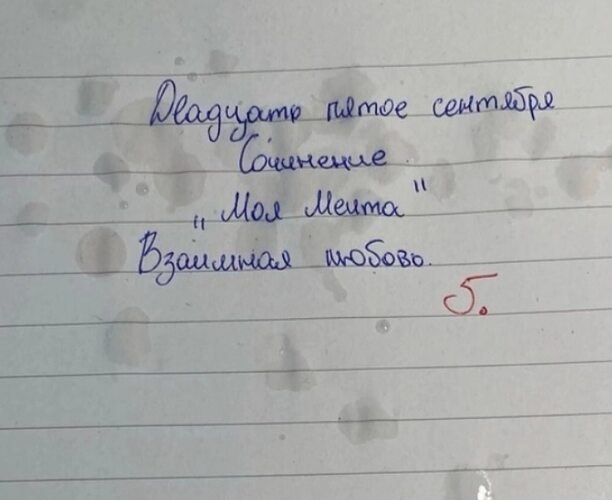 Двадцать пятое сентября
Сочинение.
„Моя Мечта"
Взаимная любовь.
5.